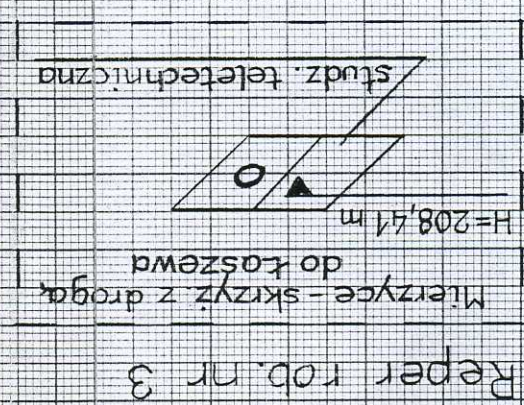 Reper rob. nr 3
Mierzyce - skrzyż. z drogą
do Łaszewa
H=208,41 m
studz. teletechniczna